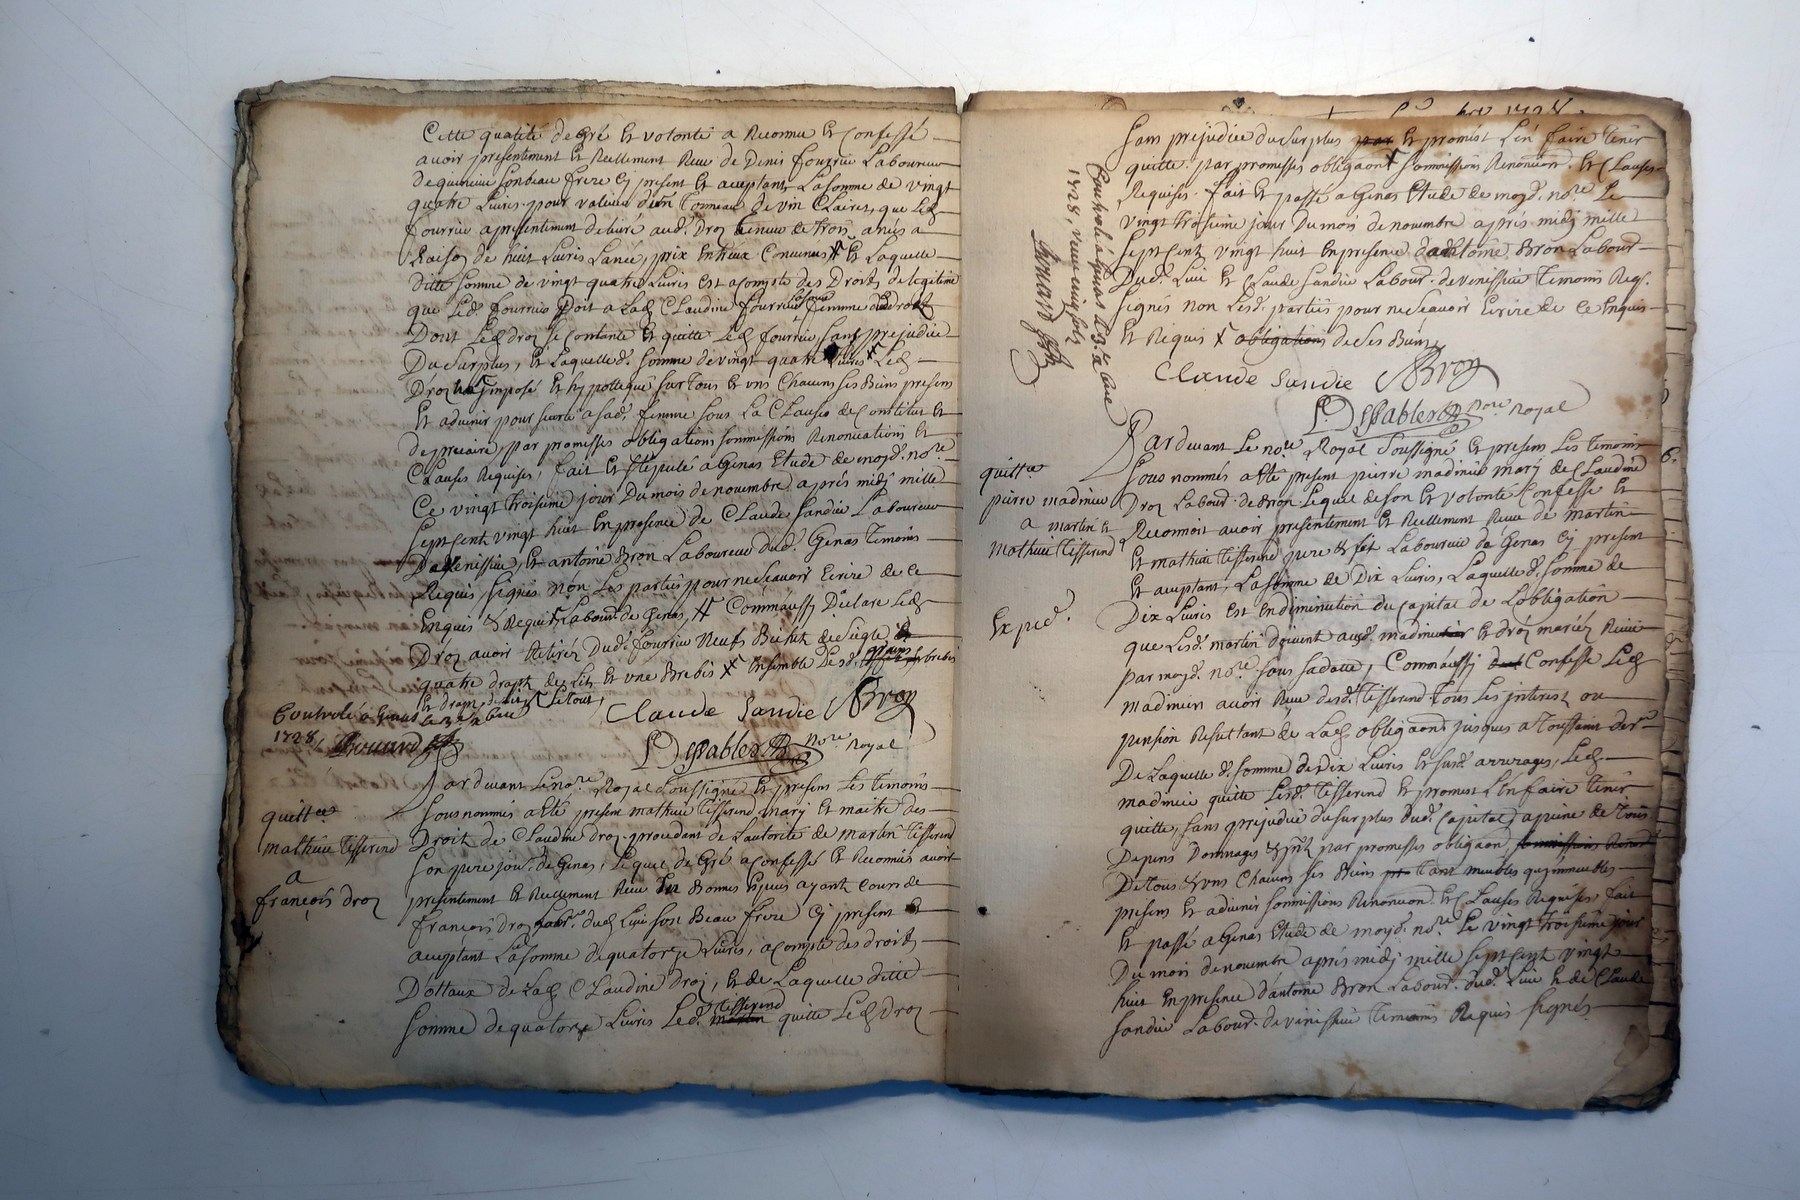 Cette qualité de gré Et volonté a Reconnu Et Confessé
avoir presentement Et Reellement Receu de Denis fourrier Laboureur
de son beau frere Cy present Et acceptant La somme de vingt
quatre Livres pour valleur d'un Tonneau de vin Clairet, que Led.
fourrier a presentement delivré aud. Droz tenue de trois anées a
Raison de huit Livres Lanée, prix Entreux Convenus Et Laquelle
ditte somme de vingt quatre Livres est acompte des Droits de legitime
que Led. fourrier Doit a Lad. Claudine fourrier sa sœur femme dud. Droz
Dont Led. droz se contante Et quitte Led. fourrier, sans prejudice
Du surplus, Et Laquelle d. somme de vingt quatre Livres Led.
Droz a imposé Et hypottequé sur Tous Et uns Chacuns ses Biens presens
Et advenir pour seureté a sad. femme sous La Clause de Constitut Et
de precaire, par promesses obligations sommissions Renonciations Et
Clauses Requises, fait Et stipulé a Genas Etude de moyd. nore.
Ce vingt troisieme jour Du mois de novembre aprés midy mille
sept cent vingt huit En presence de Claude sandie Laboureur
De venissieu, Et antoine Bron Laboureur dud. Genas Temoins
Requis signés non Les parties pour ne scavoir Ecrire de ce
Enquis & Requis Labour. de Genas, Comm'aussy Declare Led.
Droz avoir Retirer Dud. fourrier Neufs Bichets de seigle
quatre draps de Lits Et une Brebis Ensemble Desd. brebis
Et draps de Lits Le tout
Claude Sandie ABron
Controlé a Genas
1728. Bouvard
P. Despablerd Nore. Royal
Pardevant Le nore. Royal soussigné Et presens Les Temoins
quittce
sous nommés a Eté present mathieu Tisserend mary Et maitre des
mathieu Tisserend
Droits de Claudine droz procedant de L'autorité de martin Tisserend
a
son pere jour. de Genas, Lequel de Gré a Confessé Et Reconnus avoir
presentement Et Reellement Receu En Bonnes Especes ayant Cours de
françois droz
francois droz Labr. dud. Lieu son Beau frere Cy present Et
acceptant La somme de quatorze Livres, a compte des droits
Dottaux de Lad. Claudine droz, Et de Laquelle ditte
somme de quatorze Livres Led. tisserend martin quitte Led. droz
sans prejudice du surplus par Et promest L'en faire Tenir
quitte par promesses obligaons sommissions Renoncion. Et Clauses
Requises. fait Et passé a Genas Etude de moyd. nore. Le
vingt troisieme jour Du mois de novembre aprés midy mille
sept cent vingt huit En presence d'antoine Bron Labour.
Dud. Lieu Et Claude Sandie Labour. de venissieu Temoins Req.
signés non Lesd. parties pour ne scavoir Ecrire de ce Enquis
Et Requis obligations de ses Biens
Controlé a Genas
1728. Receu cinq sols
Bouvard
Claude Sandie ABron
P. Despablerd Nore. Royal
Pardevant Le nore. Royal soussigné Et presens Les Temoins
quittce
sous nommés a Eté present pierre madinier mary de Claudine
pierre madinier
Droz Labour. de Bron Lequel de son Et volonté Confesse Et
a martin &
Reconnoit avoir presentement Et Reellement Receu de martin
mathieu Tisserend
Et mathieu Tisserend pere & fils Laboureur de Genas Cy present
Et acceptant, La somme de Dix Livres, Laquelle d. somme de
Exped.
Dix Livres est En diminution du Capital de L'obligation
que Lesd. martin doivent aud. madinier Et droz mariez Receue
par moyd. nore. sous sa datte, Comm'aussy Confesse Led.
madinier avoir Receu desd. Tisserend Tous Les interest ou
pension Resultant de Lad. obligaon jusques a Toussaint der.
De Laquelle d. somme de Dix Livres Et susd. arrerages, Led.
madinier quitte Lesd. Tisserend Et promest L'En faire Tenir
quitte, sans prejudice du surplus dud. Capital, a peine de Tous
Depens Dommages par promesses obligaon, sommissions
De tous & uns Chacuns ses Biens Tant meubles qu'immeubles
presens Et advenir sommissions Renoncion. Et Clauses Requises, fait
Et passé a Genas Etude de moyd. nore. Le vingt troisieme jour
Du mois de novembre aprés midy mille sept cent vingt
huit En presence d'antoine Bron Labour. dud. Lieu Et de Claude
Sandie Labour. de venissieu Temoins Requis signés